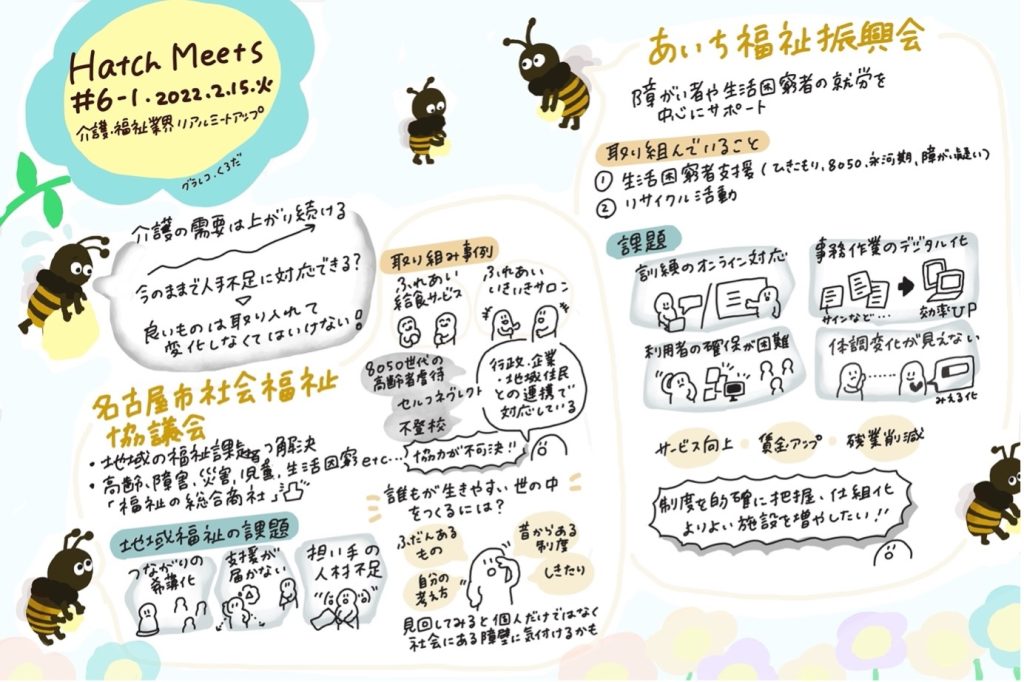 Hatch Meets
#6-1.2022.2.15.火
介護.福祉業界リアルミートアップ
グラレコ.くろだ
介護の需要は上がり続ける
今のままで人手不足に対応できる?
良いものは取り入れて
変化しなくてはいけない!
名古屋市社会福祉
協議会
・地域の福祉課題
解決
・高齢、障害、災害、児童、生活困窮etc...
「福祉の総合商社」
地域福祉の課題
つながりの
希薄化
支援が
届かない
担い手の
人材不足
取り組み事例
ふれあい
給食サービス
ふれあい
いきいきサロン
8050世代の
高齢者虐待
セルフネグレクト
不登校
行政、企業
・地域住民
との連携で
対応している
協力が不可決!!
誰もが生きやすい世の中
をつくるには?
ふだんある
もの
昔からある
制度
自分の
考え方
しきたり
見回してみると個人だけではなく
社会にある障壁に気付けるかも
あいち福祉振興会
障がい者や生活困窮者の就労を
中心にサポート
取り組んでいること
① 生活困窮者支援(ひきこもり、8050、氷河期、障がい疑い)
② リサイクル活動
課題
訓練のオンライン対応
事務作業のデジタル化
サインなど…
効率UP
利用者の確保が困難
体調変化が見えない
みえる化
サービス向上・賃金アップ・残業削減
制度を的確に把握、仕組化
よりよい施設を増やしたい!!